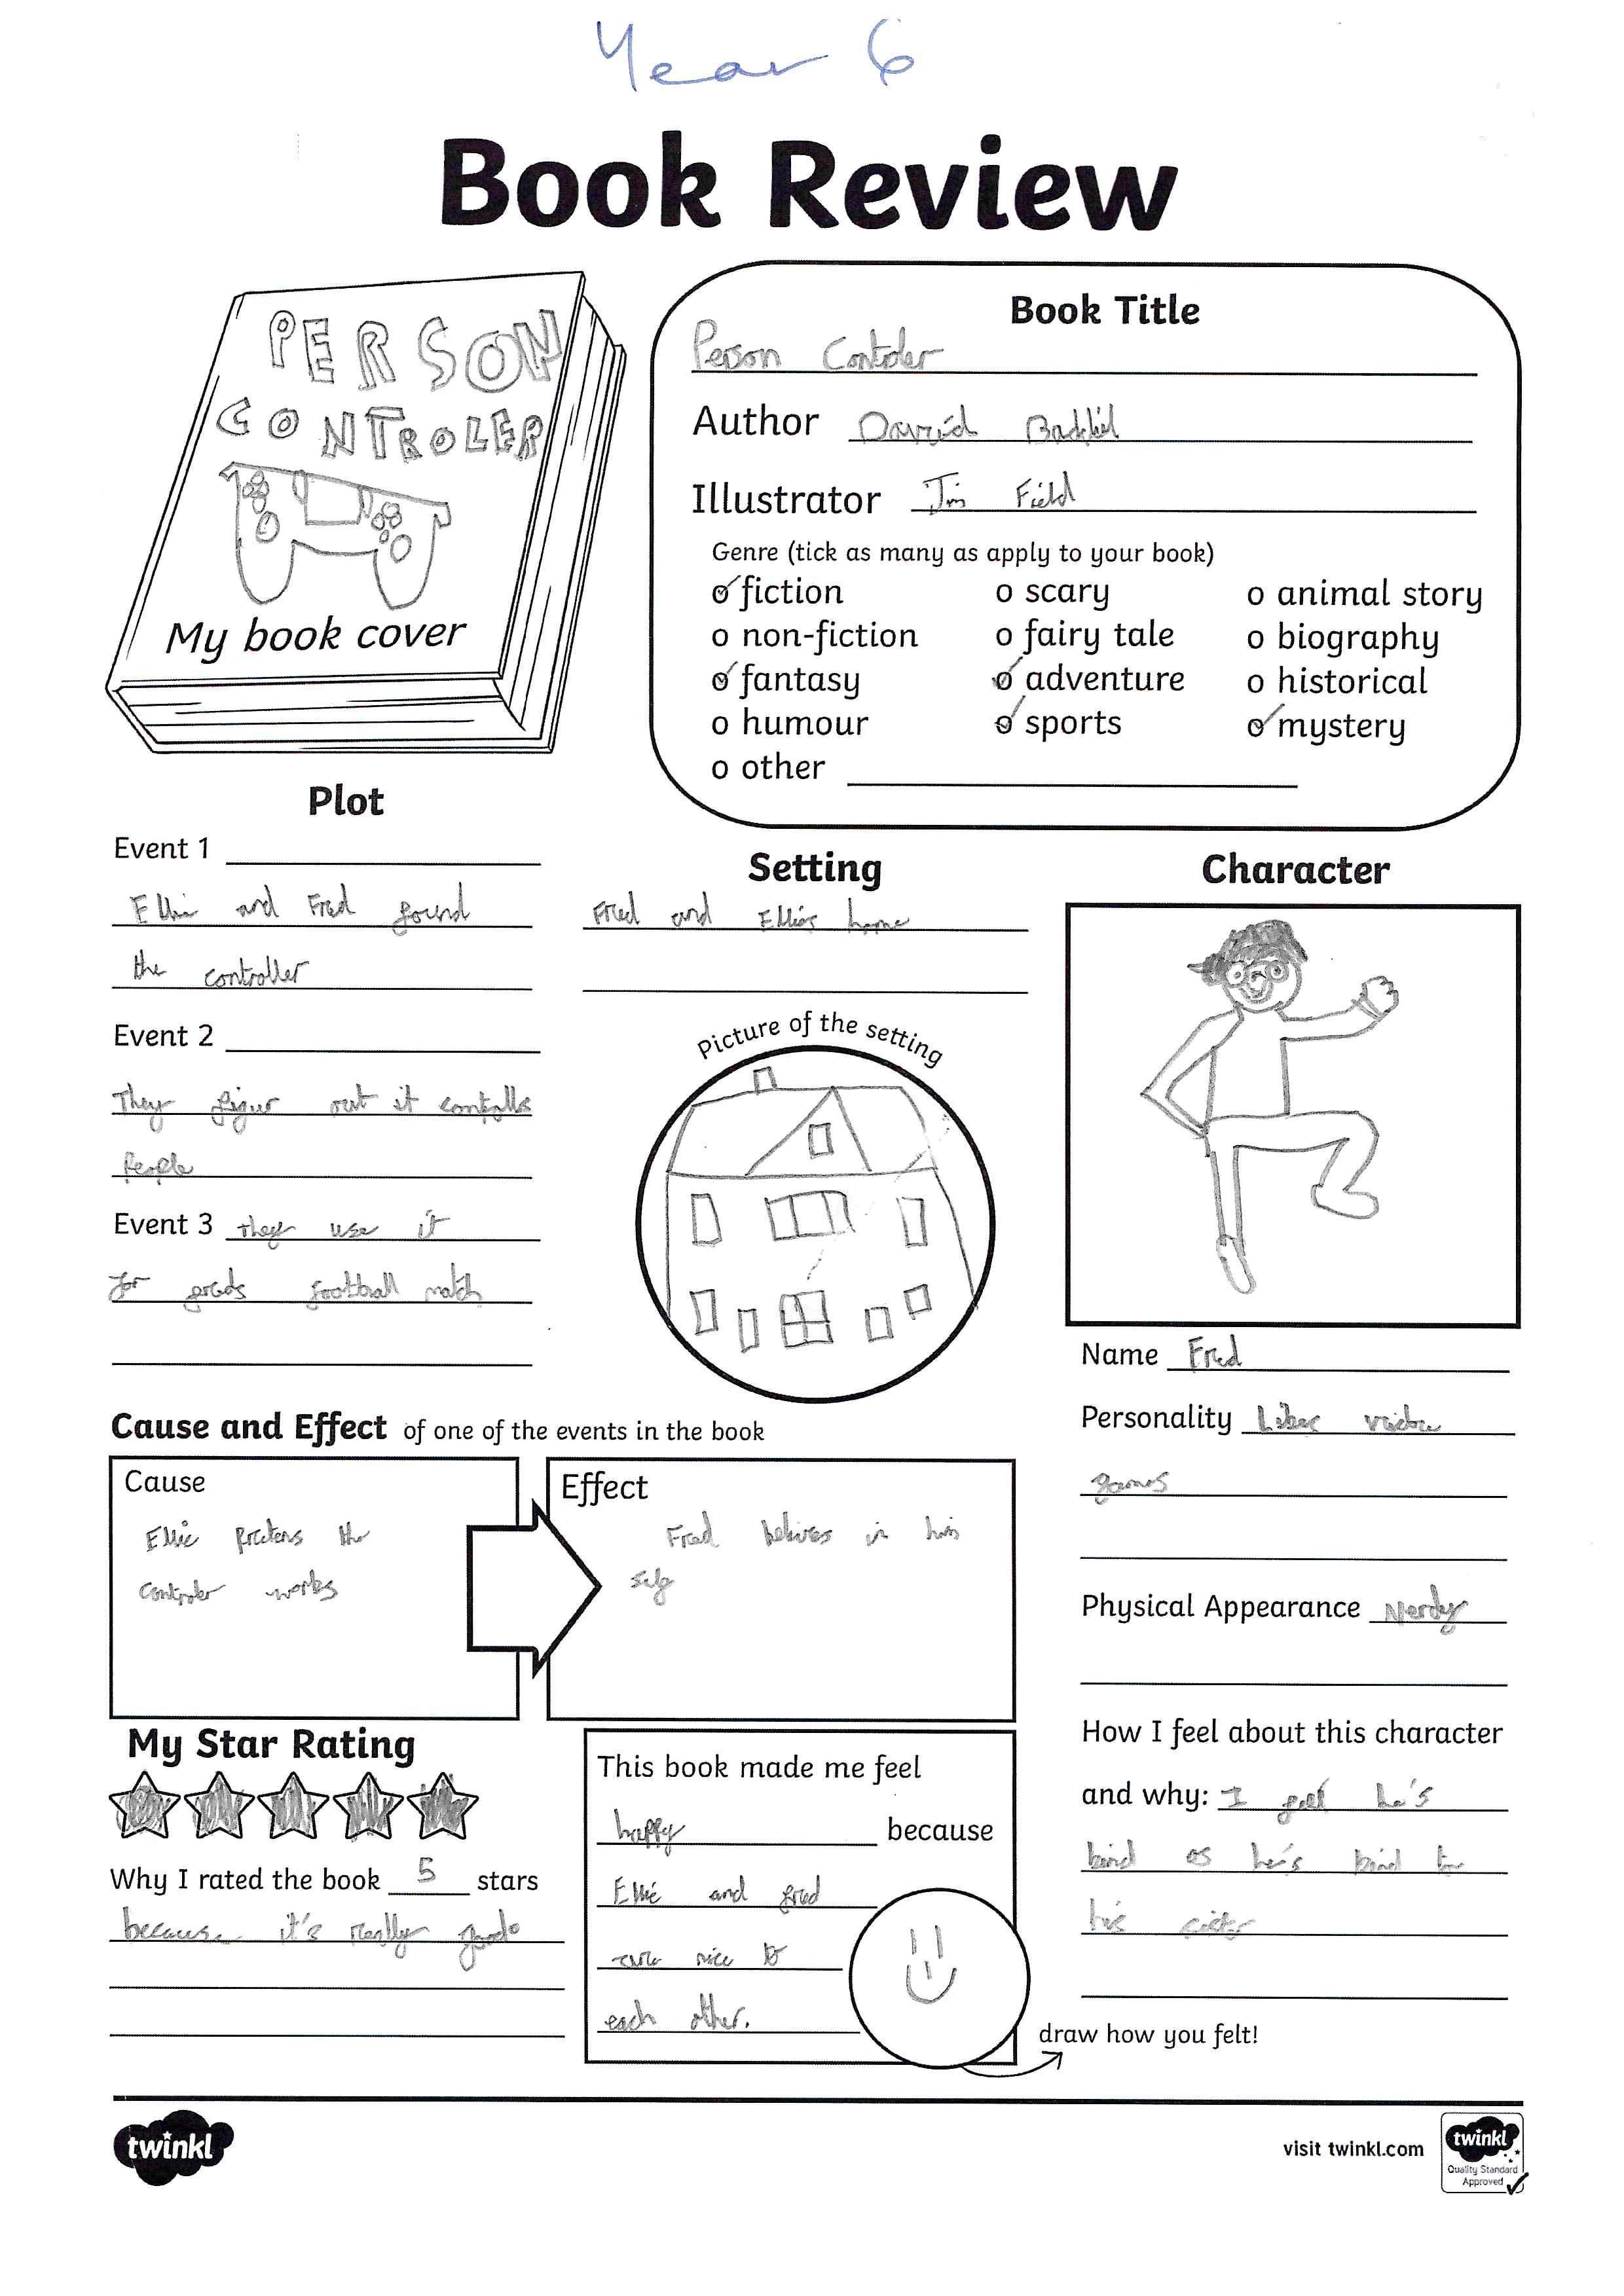 Year 6
Book Review
PERSON
CONTROLER
My book cover
Book Title
Person Controler
Author David
Illustrator Jim Field
Genre (tick as many as apply to your book)
fiction
non-fiction
fantasy
humour
other
scary
fairy tale
adventure
sports
animal story
biography
historical
mystery
Plot
Event 1
Ellie and Fred found
the controller
Event 2
They figur out it controlls
People
Event 3 they use it
for football match
Setting
Fred and Ellies home
Picture of the setting
Character
Name Fred
Personality Likes
games
Physical Appearance Nerdy
How I feel about this character
and why: I feel he's
kind as he's kind to
his sister
Cause and Effect of one of the events in the book
Cause
Ellie the
controler works
Effect
Fred belives in him
self
My Star Rating
Why I rated the book 5 stars
because it's really good
This book made me feel
happy because
Ellie and fred
are nice to
each other.
draw how you felt!
twinkl
visit twinkl.com
twinkl
Quality Standard
Approved